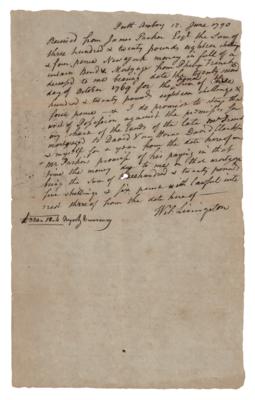 Perth Amboy 12. June 1790
Received from James Parker Esqr. the Sum of
three hundred & twenty pounds eighteen shillings
& four pence New York money in full of a
Bond & Mortgage from Philip French
deceased to me bearing date the twenty
day of October 1769 for the Sum of three
hundred & twenty pounds eighteen shillings &
four pence. I do promise to stay the
writ of possession against the premises for
my share of the lands of the late Mr French
mortgaged to David Van Horne David Clarkson
& myself for a year from the date hereof on
Mr Parker's of his paying in that
time the money due to me in that mortgage
being the Sum of hundred & twenty pounds
five shillings & six pence with lawful inte
rest thereof from the date hereof
£320..18.4 York Currency
Wil. Livingston